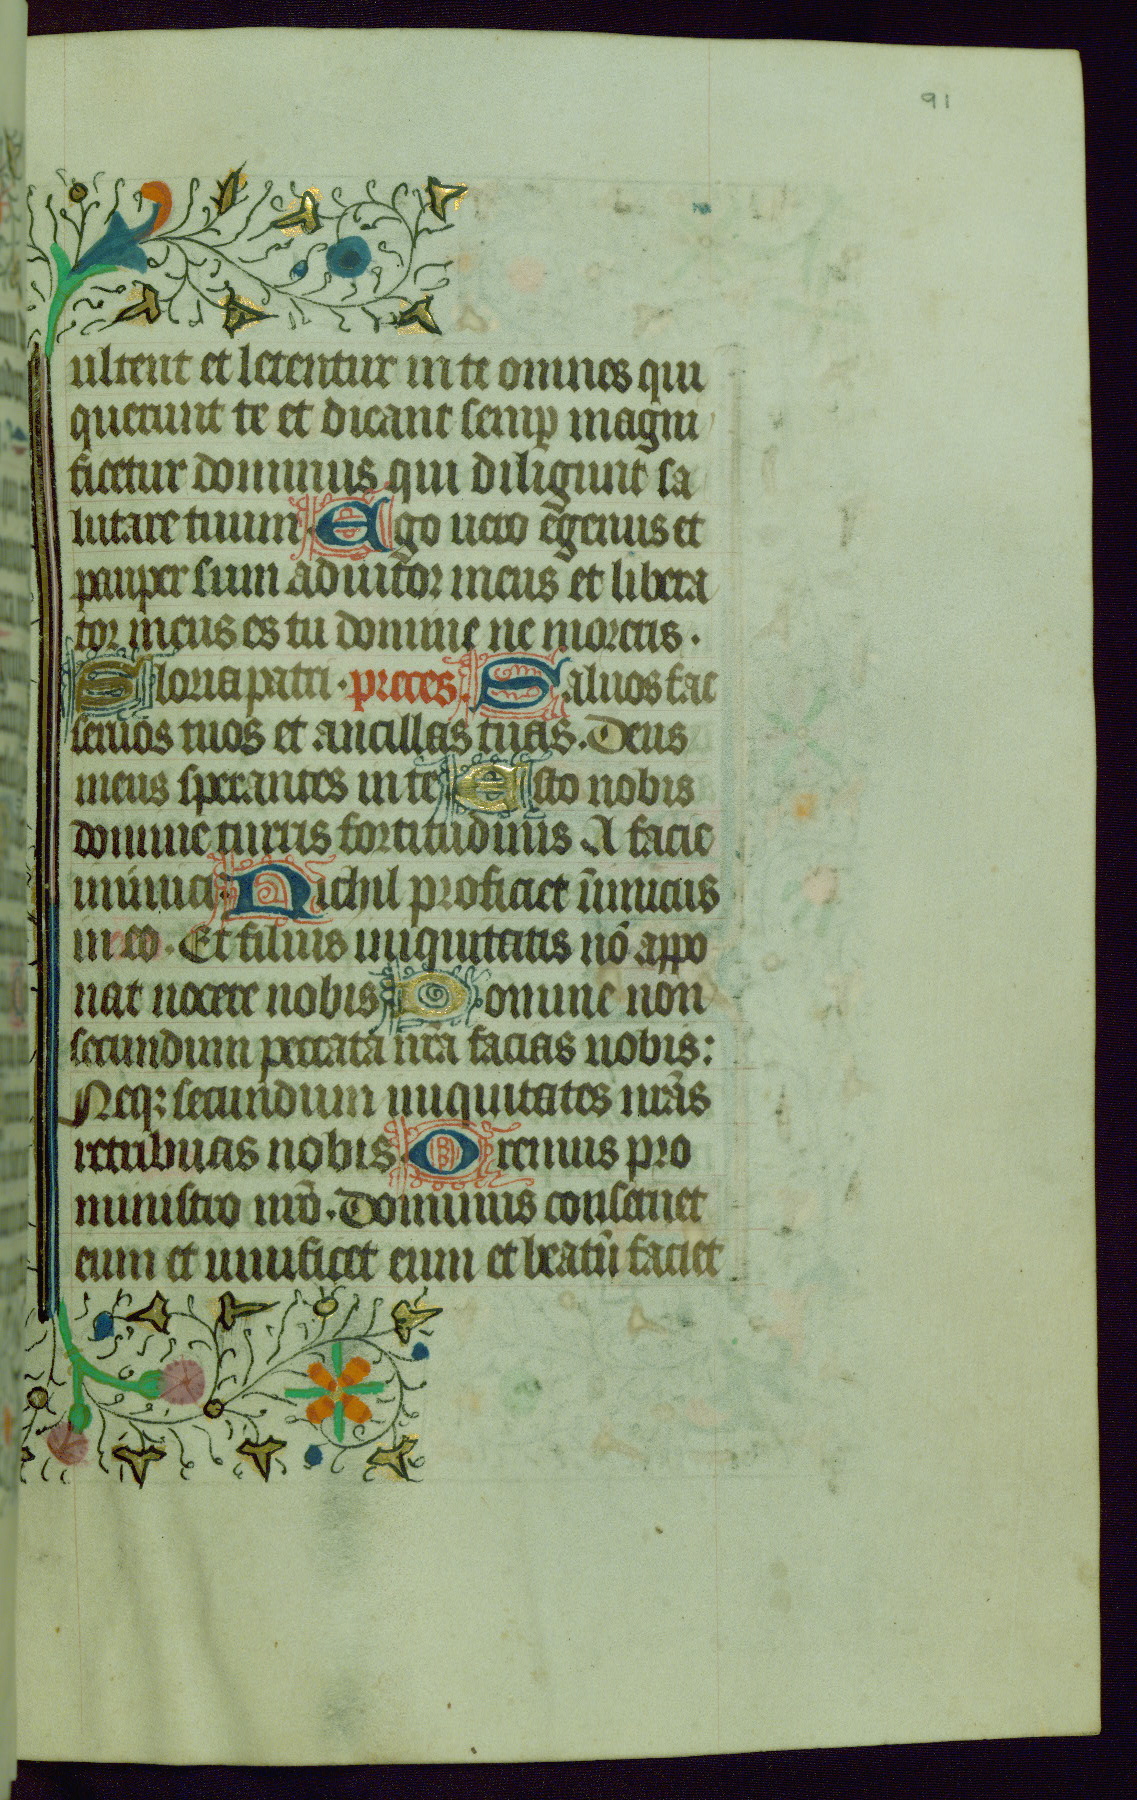 91
ultent et letentur in te omnes qui
querunt te et dicant semp magni
ficetur dominus qui diligunt sa
lutare tuum Ego uero egenus et
pauper sum adiutor meus et libera
tor meus es tu domine ne moreris.
Gloria patri. preces. Saluos fac
seruos tuos et ancillas tuas. Deus
meus sperantes in te Esto nobis
domine turris fortitudinis A facie
inimici Nichil proficiet inimicus
in eo. Et filius iniquitatis nō appo
nat nocere nobis Domine non
secundum peccata nr̄a facias nobis:
Neqꝫ secundum iniquitates nr̄as
retribuas nobis. Oremus pro
ministro nrō. Dominus conseruet
eum et uiuificet eum et beatū faciet